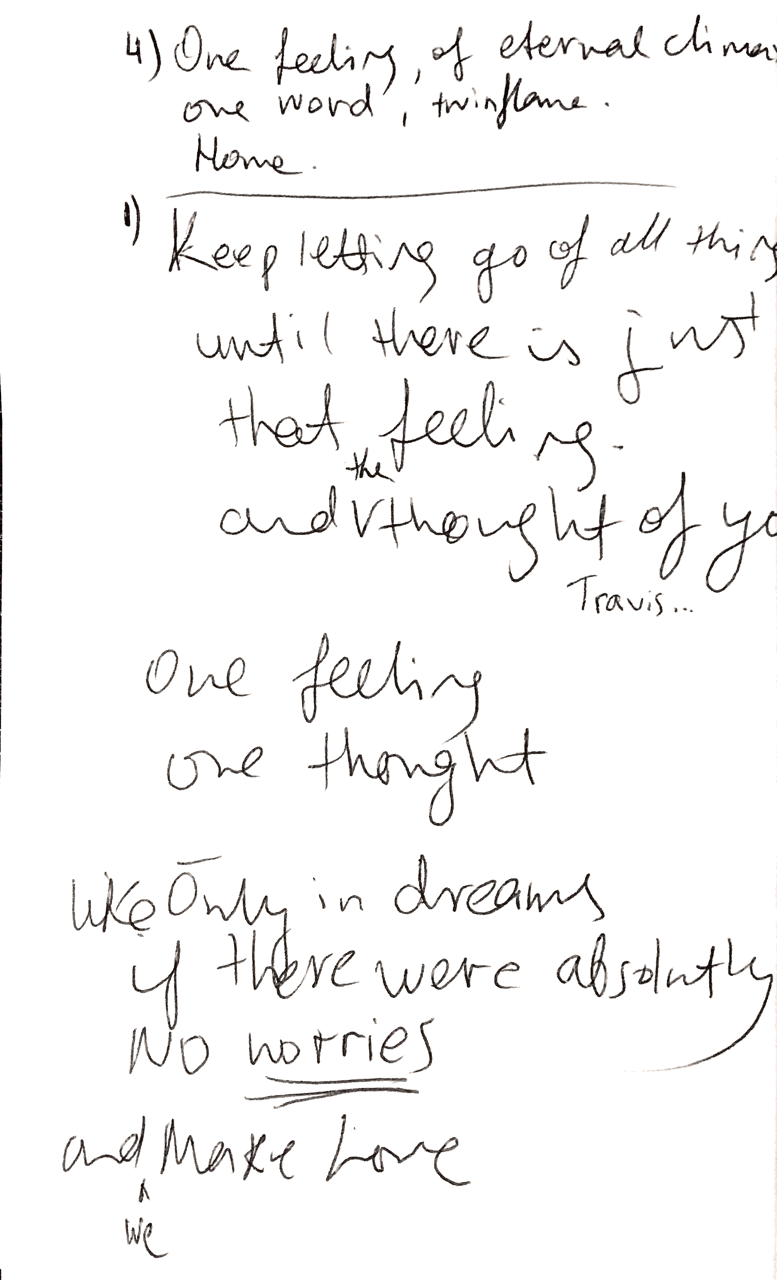 4) One feeling, of eternal climax
one word, twinflame.
Home.
1) Keep letting go of all thing
until there is just
that feeling.
and the thought of yo
Travis...
One feeling
one thought
like Only in dreams
if there were absolutly
NO worries
and we Make Love